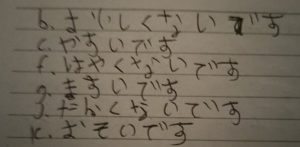 b. おいしくないです
c. やすいです
f. はやくないです
g. まずいです
j. たかくないです
k. おそいです